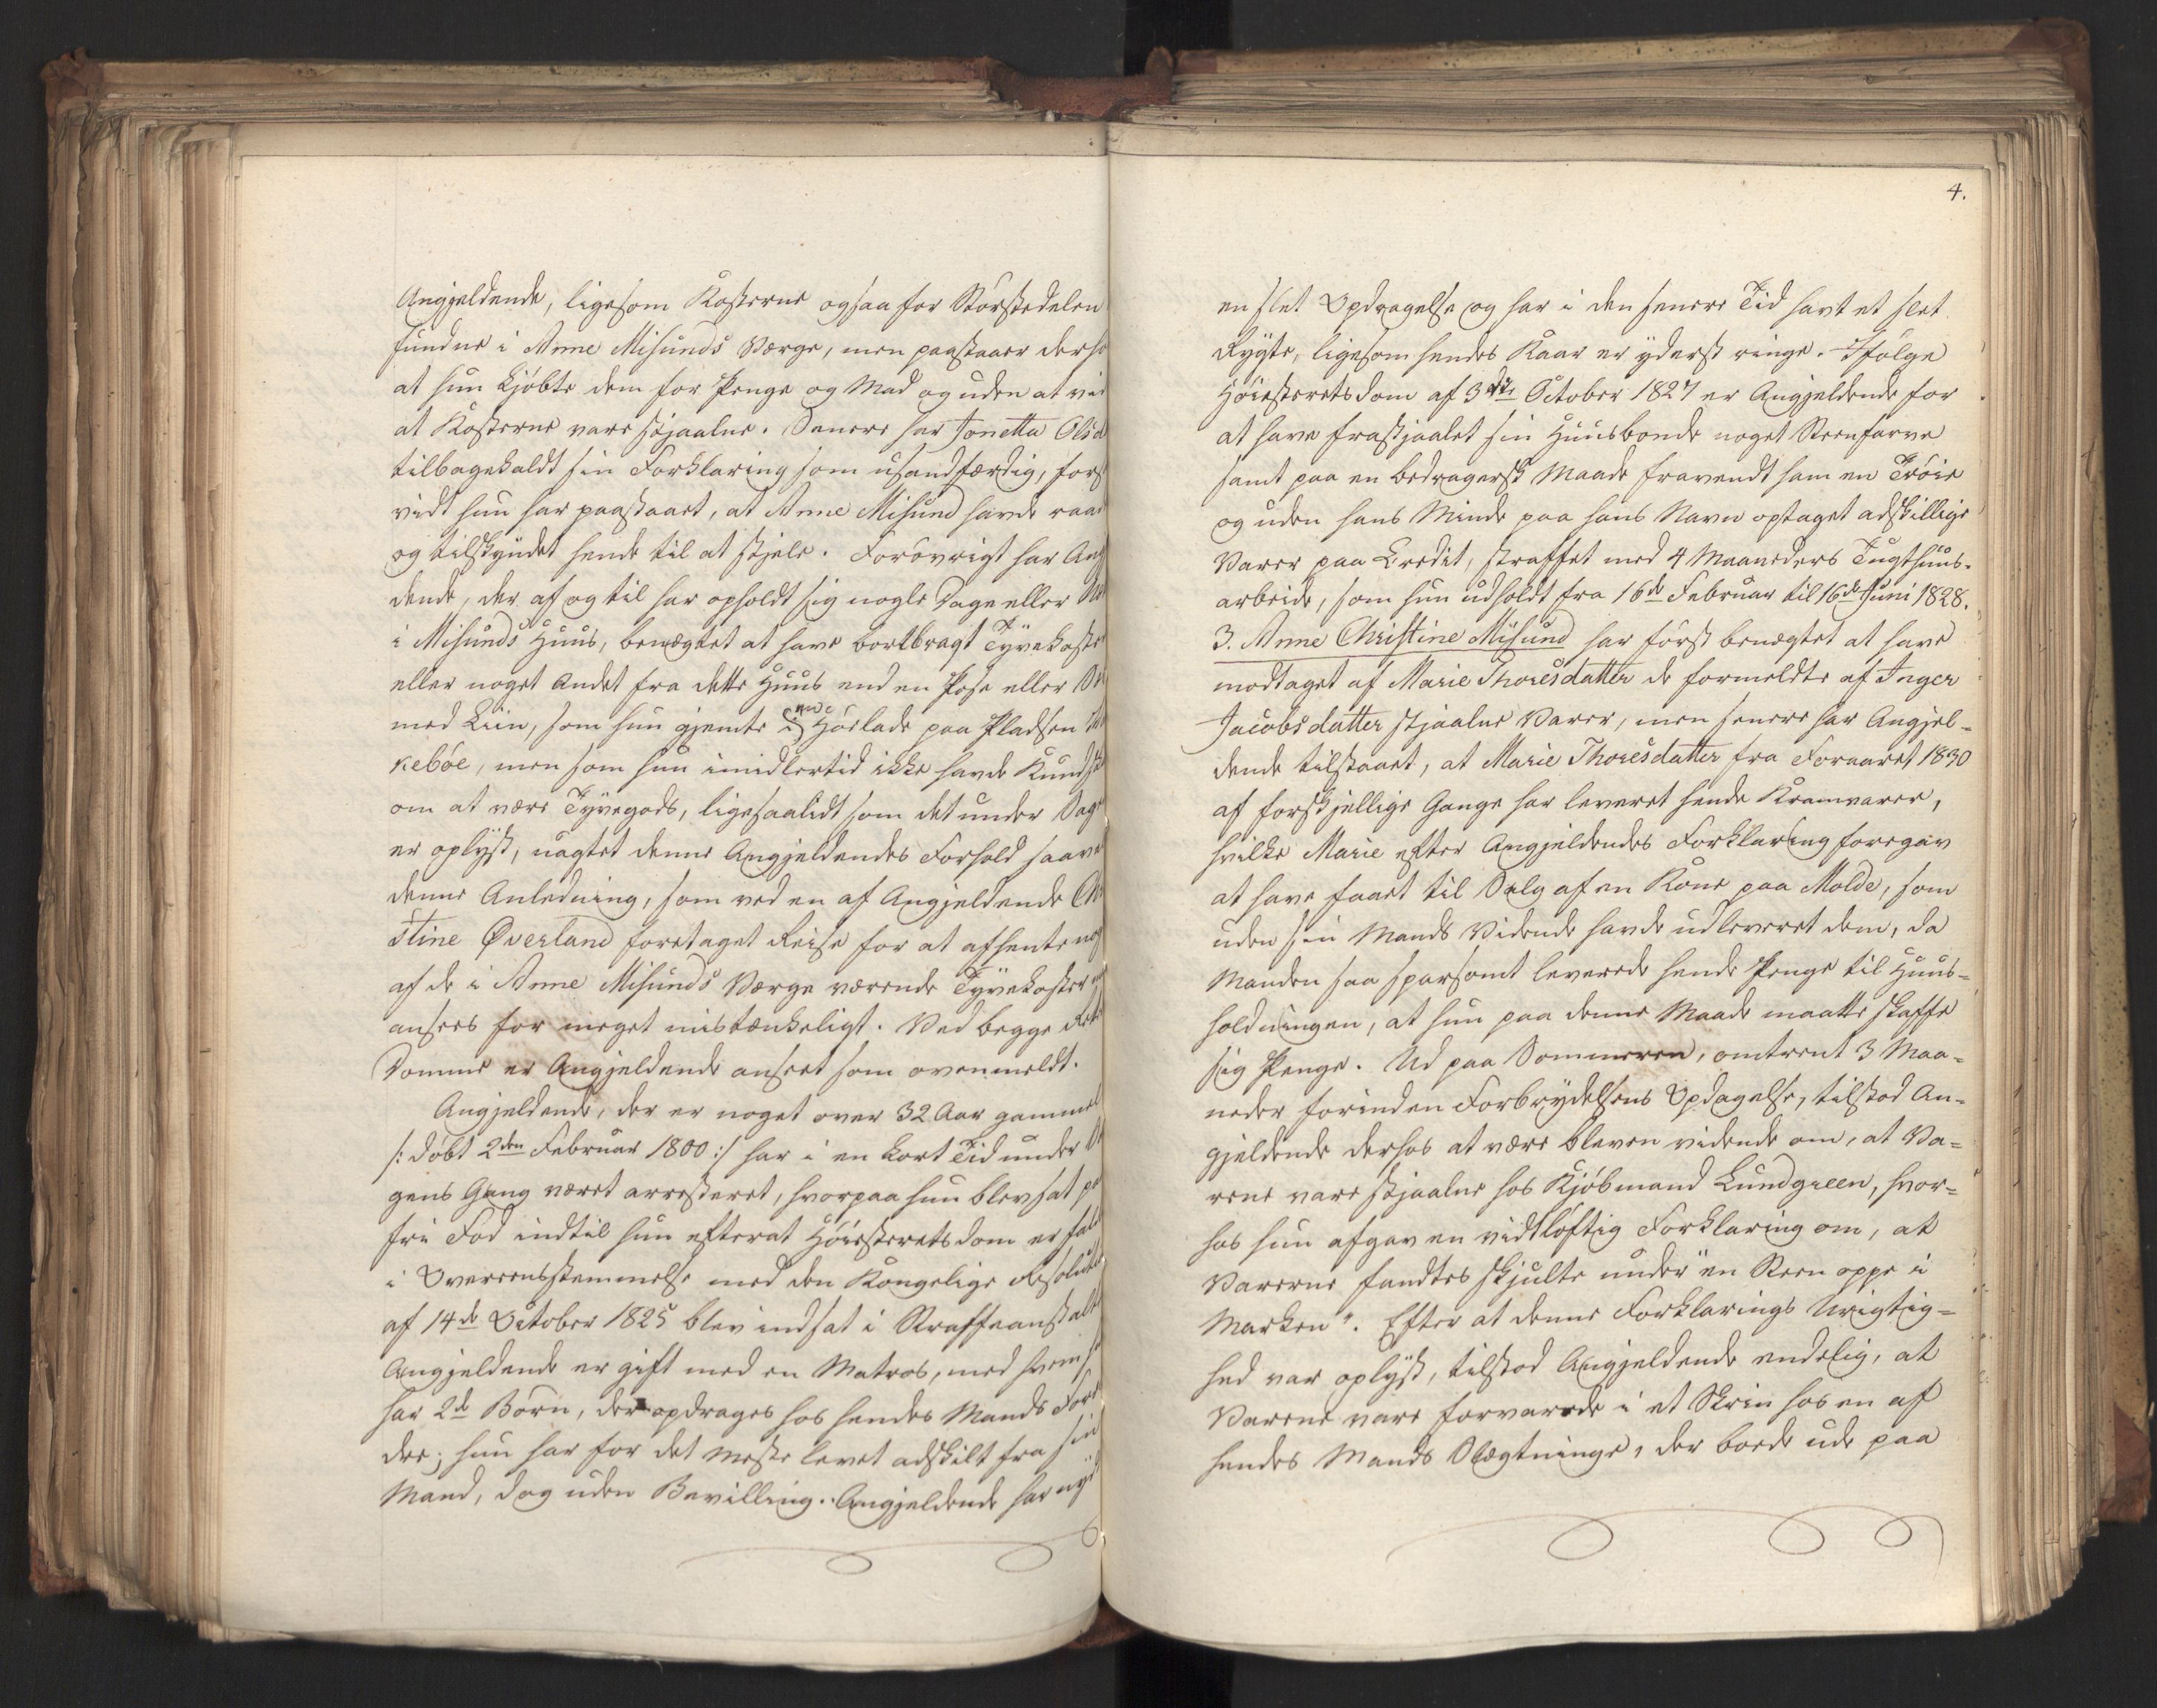 Angjeldende, ligesom Kosterne ogsaa for Störstedelen
fundne i Anne Misunds Værge, men paastaaer derho
at hun kjöbte dem for Penge og Mad og uden at vid
at Kosterne vare stjaalne. Senere har Jonetta Olsd
tilbagekaldt sin Forklaring som usandfærdig, fors
vidt hun har paastaaet, at Anne Misund havde raad
og tilskyndet hende til at stjele. Forövrigt har Ang
dende, der af og til har opholdt sig nogle Dage eller
i Misunds Huus, benægtet at have bortbragt Tyvekoster
eller noget Andet fra dette Huus end en Pose eller
med Liin, som hun gjemte i Höelade paa Pladsen
keböe, men som hun imidlertid ikke havde Kundsk
om at være Tyvegods, ligesaalidt som det under Sag
er oplyst, uagtet denne Angjeldendes Forhold saavel
denne Anledning, som ved en af Angjeldende Chr
stine Øverland foretaget Reise for at afhente nog
af de i Anne Misunds Værge værende Tyvekoster
ansees for meget mistænkeligt. Ved begge Rets
Domme er Angjeldende anseet som ovenmeldt.
Angjeldende, der er noget over 32 Aar gammel
/: döbt 2den Februar 1800 :/ har i en kort Tid under
gens Gang været arresteret, hvorpaa hun blev sat paa
fri Fod indtil hun efterat Höiesteretsdom er fald
i Overeensstemmelse med den Kongelige Resoluti
af 14de October 1825 blev indsat i Straffeanstalt
Angjeldende er gift med en Matros, med hvem h
har 2de Börn, der opdrages hos hendes Mands Foræl
dre; hun har for det meste levet adskilt fra sin
Mand, dog uden Bevilling. Angjeldende har nyd
4.
en slet Opdragelse og har i den senere Tid havt et slet
Rygte, ligesom hendes Kaar er yderst ringe. Ifölge
Höiesteretsdom af 3die October 1827 er Angjeldende for
at have frastjaalet sin Huusbonde noget Steenfarve
samt paa en bedragersk Maade fravendt ham en Tröie
og uden hans Minde paa hans Navn optaget adskillige
Varer paa Credit, straffet med 4 Maaneders Tugthuus-
arbeide, som hun udholdt fra 16de Februar til 16de Juni 1828.
3. Anne Christine Misund har först benægtet at have
modtaget af Marie Thoresdatter de formeldte af Inger
Jacobsdatter stjaalne Varer, men senere har Angjel-
dende tilstaaet, at Marie Thoresdatter fra Foraaret 1830
af forskjellige Gange har leveret hende Kramvarer,
hvilke Marie efter Angjeldendes Forklaring foregav
at have faaet til Salg af en Kone paa Molde, som
uden sin Mands Vidende havde udleveret dem, da
Manden saa sparsomt leverede hende Penge til Huus-
holdningen, at hun paa denne Maade maatte skaffe
sig Penge. Ud paa Sommeren, omtrent 3 Maa-
neder forinden Forbrydelsens Opdagelse, tilstod An-
gjeldende derhos at være bleven vidende om, at Va-
rene vare stjaalne hos Kjöbmand Lundgreen, hvor-
hos hun afgav en vidtlöftig Forklaring om, at
Varerne fandtes skjulte under "en Steen oppe i
Marken". Efter at denne Forklarings Urigtig-
hed var oplyst, tilstod Angjeldende endelig, at
Varene vare forvarede i et Skrin hos en af
hendes Mands Slægtninge, der boede ude paa